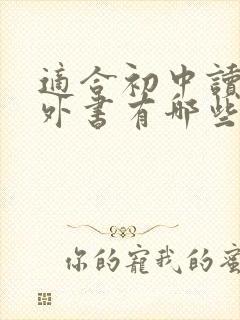 適合初中讀
外書有哪些
你的寵我的蜜